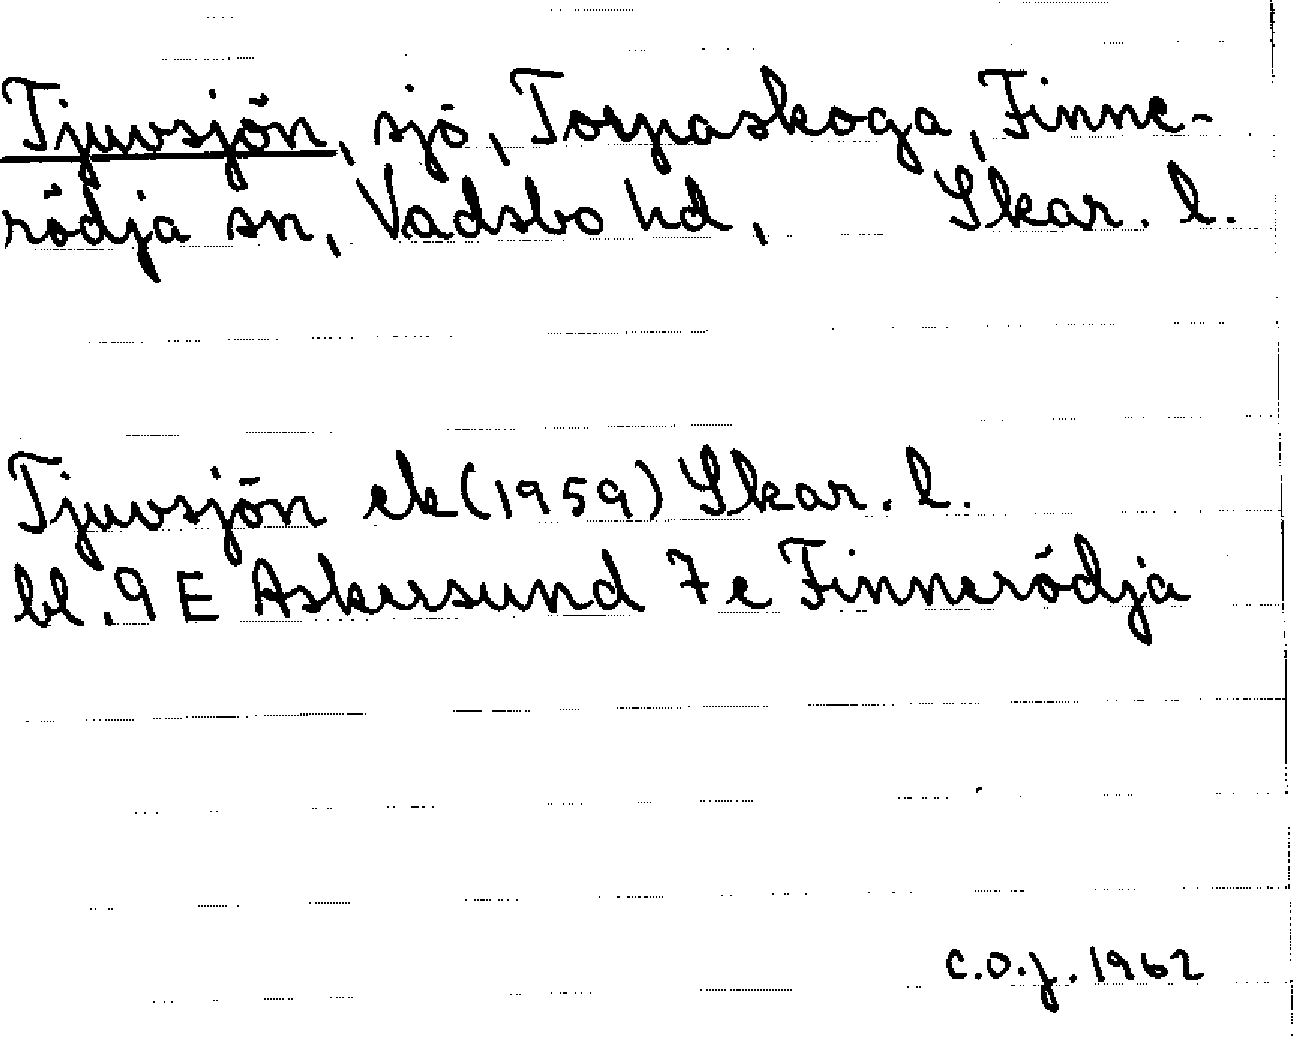 Tjuvsjön, sjö, Torpaskoga, Finne-
rödja sn, Vadsbo hd, Skar. l.
Tjuvsjön ek (1959) Skar. l.
bl. 9 E Askersund 7 e Finnerödja
C.O.J. 1962